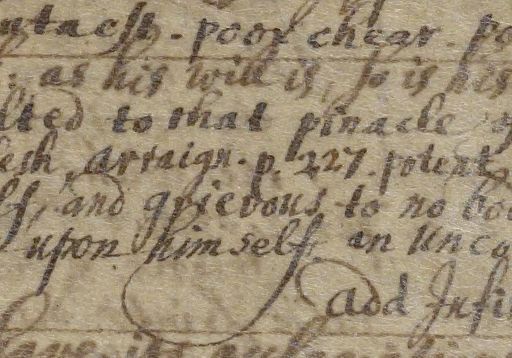 poor chear. po
: as his will is, so is his
lted to that pinacle
lesh, arraign. p. 227. potent,
lf, and grievous to no bo
upon himself. an Unco
add Infi